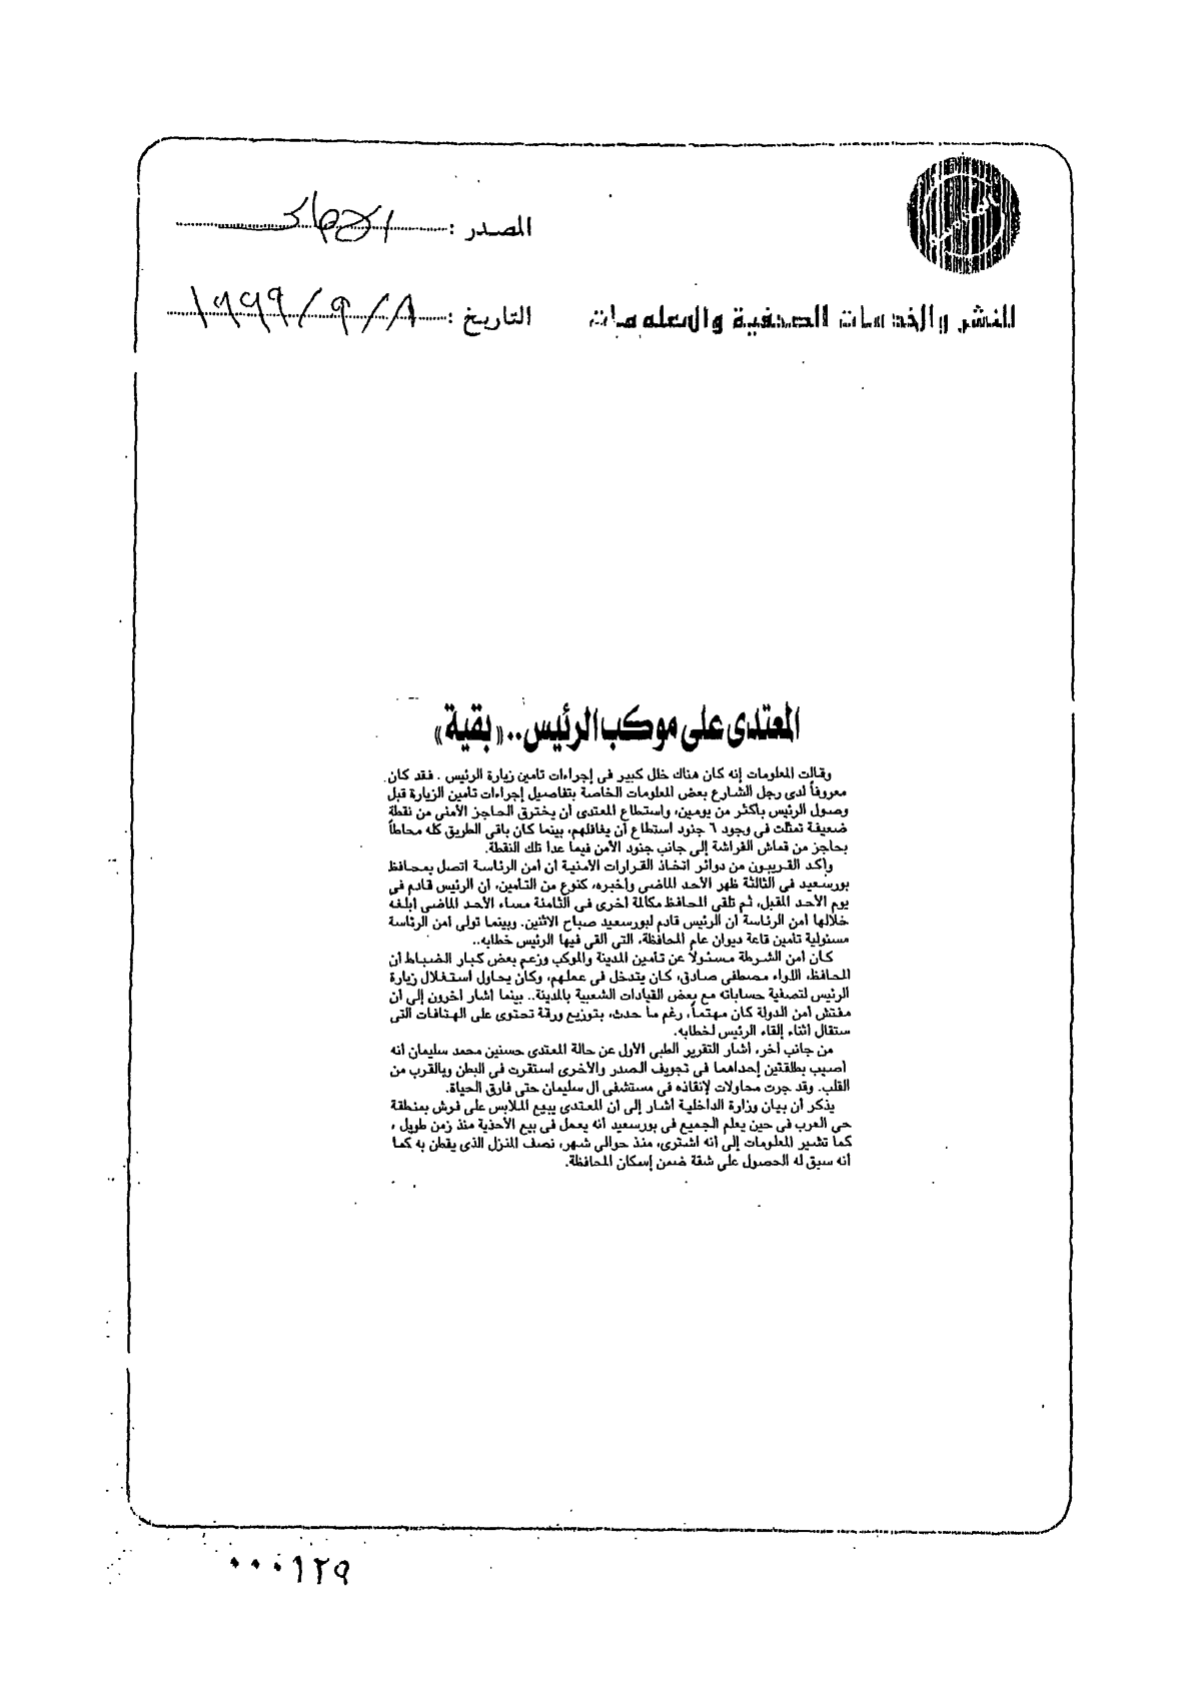 المصدر :
للنشر والخدمات الصحفية والمعلومات
التاريخ : ٨ / ٩ / ١٩٩٩
المعتدى على موكب الرئيس.. «بقية»
وقالت المعلومات إنه كان هناك خلل كبير فى إجراءات تامين زيارة الرئيس . فقد كان
معروفاً لدى رجل الشارع بعض المعلومات الخاصة بتفاصيل إجراءات تامين الزيارة قبل
وصول الرئيس باكثر من يومين، واستطاع المعتدى أن يخترق الحاجز الأمنى من نقطة
ضعيفة تمثلت فى وجود ٦ جنود استطاع أن يغافلهم، بينما كان باقى الطريق كله محاطاً
بحاجز من قماش الفراشة إلى جانب جنود الأمن فيما عدا تلك النقطة.
وأكد القريبون من دوائر اتخاذ القرارات الأمنية ان أمن الرئاسة اتصل بمحافظ
بورسعيد فى الثالثة ظهر الأحد الماضى وأخبره، كنوع من التامين، ان الرئيس قادم فى
يوم الأحد المقبل، ثم تلقى المحافظ مكالمة أخرى فى الثامنة مساء الأحد الماضى ابلغه
خلالها أمن الرئاسة ان الرئيس قادم لبورسعيد صباح الاثنين. وبينما تولى أمن الرئاسة
مسئولية تامين قاعة ديوان عام المحافظة، التى القى فيها الرئيس خطابه..
كان أمن الشرطة مسئولاً عن تامين المدينة والموكب وزعم بعض كبار الضباط أن
المحافظ، اللواء مصطفى صادق، كان يتدخل فى عملهم، وكان يحاول استغلال زيارة
الرئيس لتصفية حساباته مع بعض القيادات الشعبية بالمدينة.. بينما اشار اخرون إلى أن
مفتش أمن الدولة كان مهتماً، رغم ما حدث، بتوزيع ورقة تحتوى على الهتافات التى
ستقال اثناء إلقاء الرئيس لخطابه.
من جانب آخر، أشار التقرير الطبى الأول عن حالة المعتدى حسنين محمد سليمان أنه
أصيب بطلقتين إحداهما فى تجويف الصدر والأخرى استقرت فى البطن وبالقرب من
القلب. وقد جرت محاولات لإنقاذه فى مستشفى ال سليمان حتى فارق الحياة.
يذكر أن بيان وزارة الداخلية أشار إلى أن المعتدى يبيع الملابس على فرش بمنطقة
حى العرب فى حين يعلم الجميع فى بورسعيد أنه يعمل فى بيع الأحذية منذ زمن طويل ،
كما تشير المعلومات إلى أنه اشترى، منذ حوالى شهر، نصف المنزل الذى يقطن به كما
أنه سبق له الحصول على شقة ضمن إسكان المحافظة.
٠٠٠١٢٩